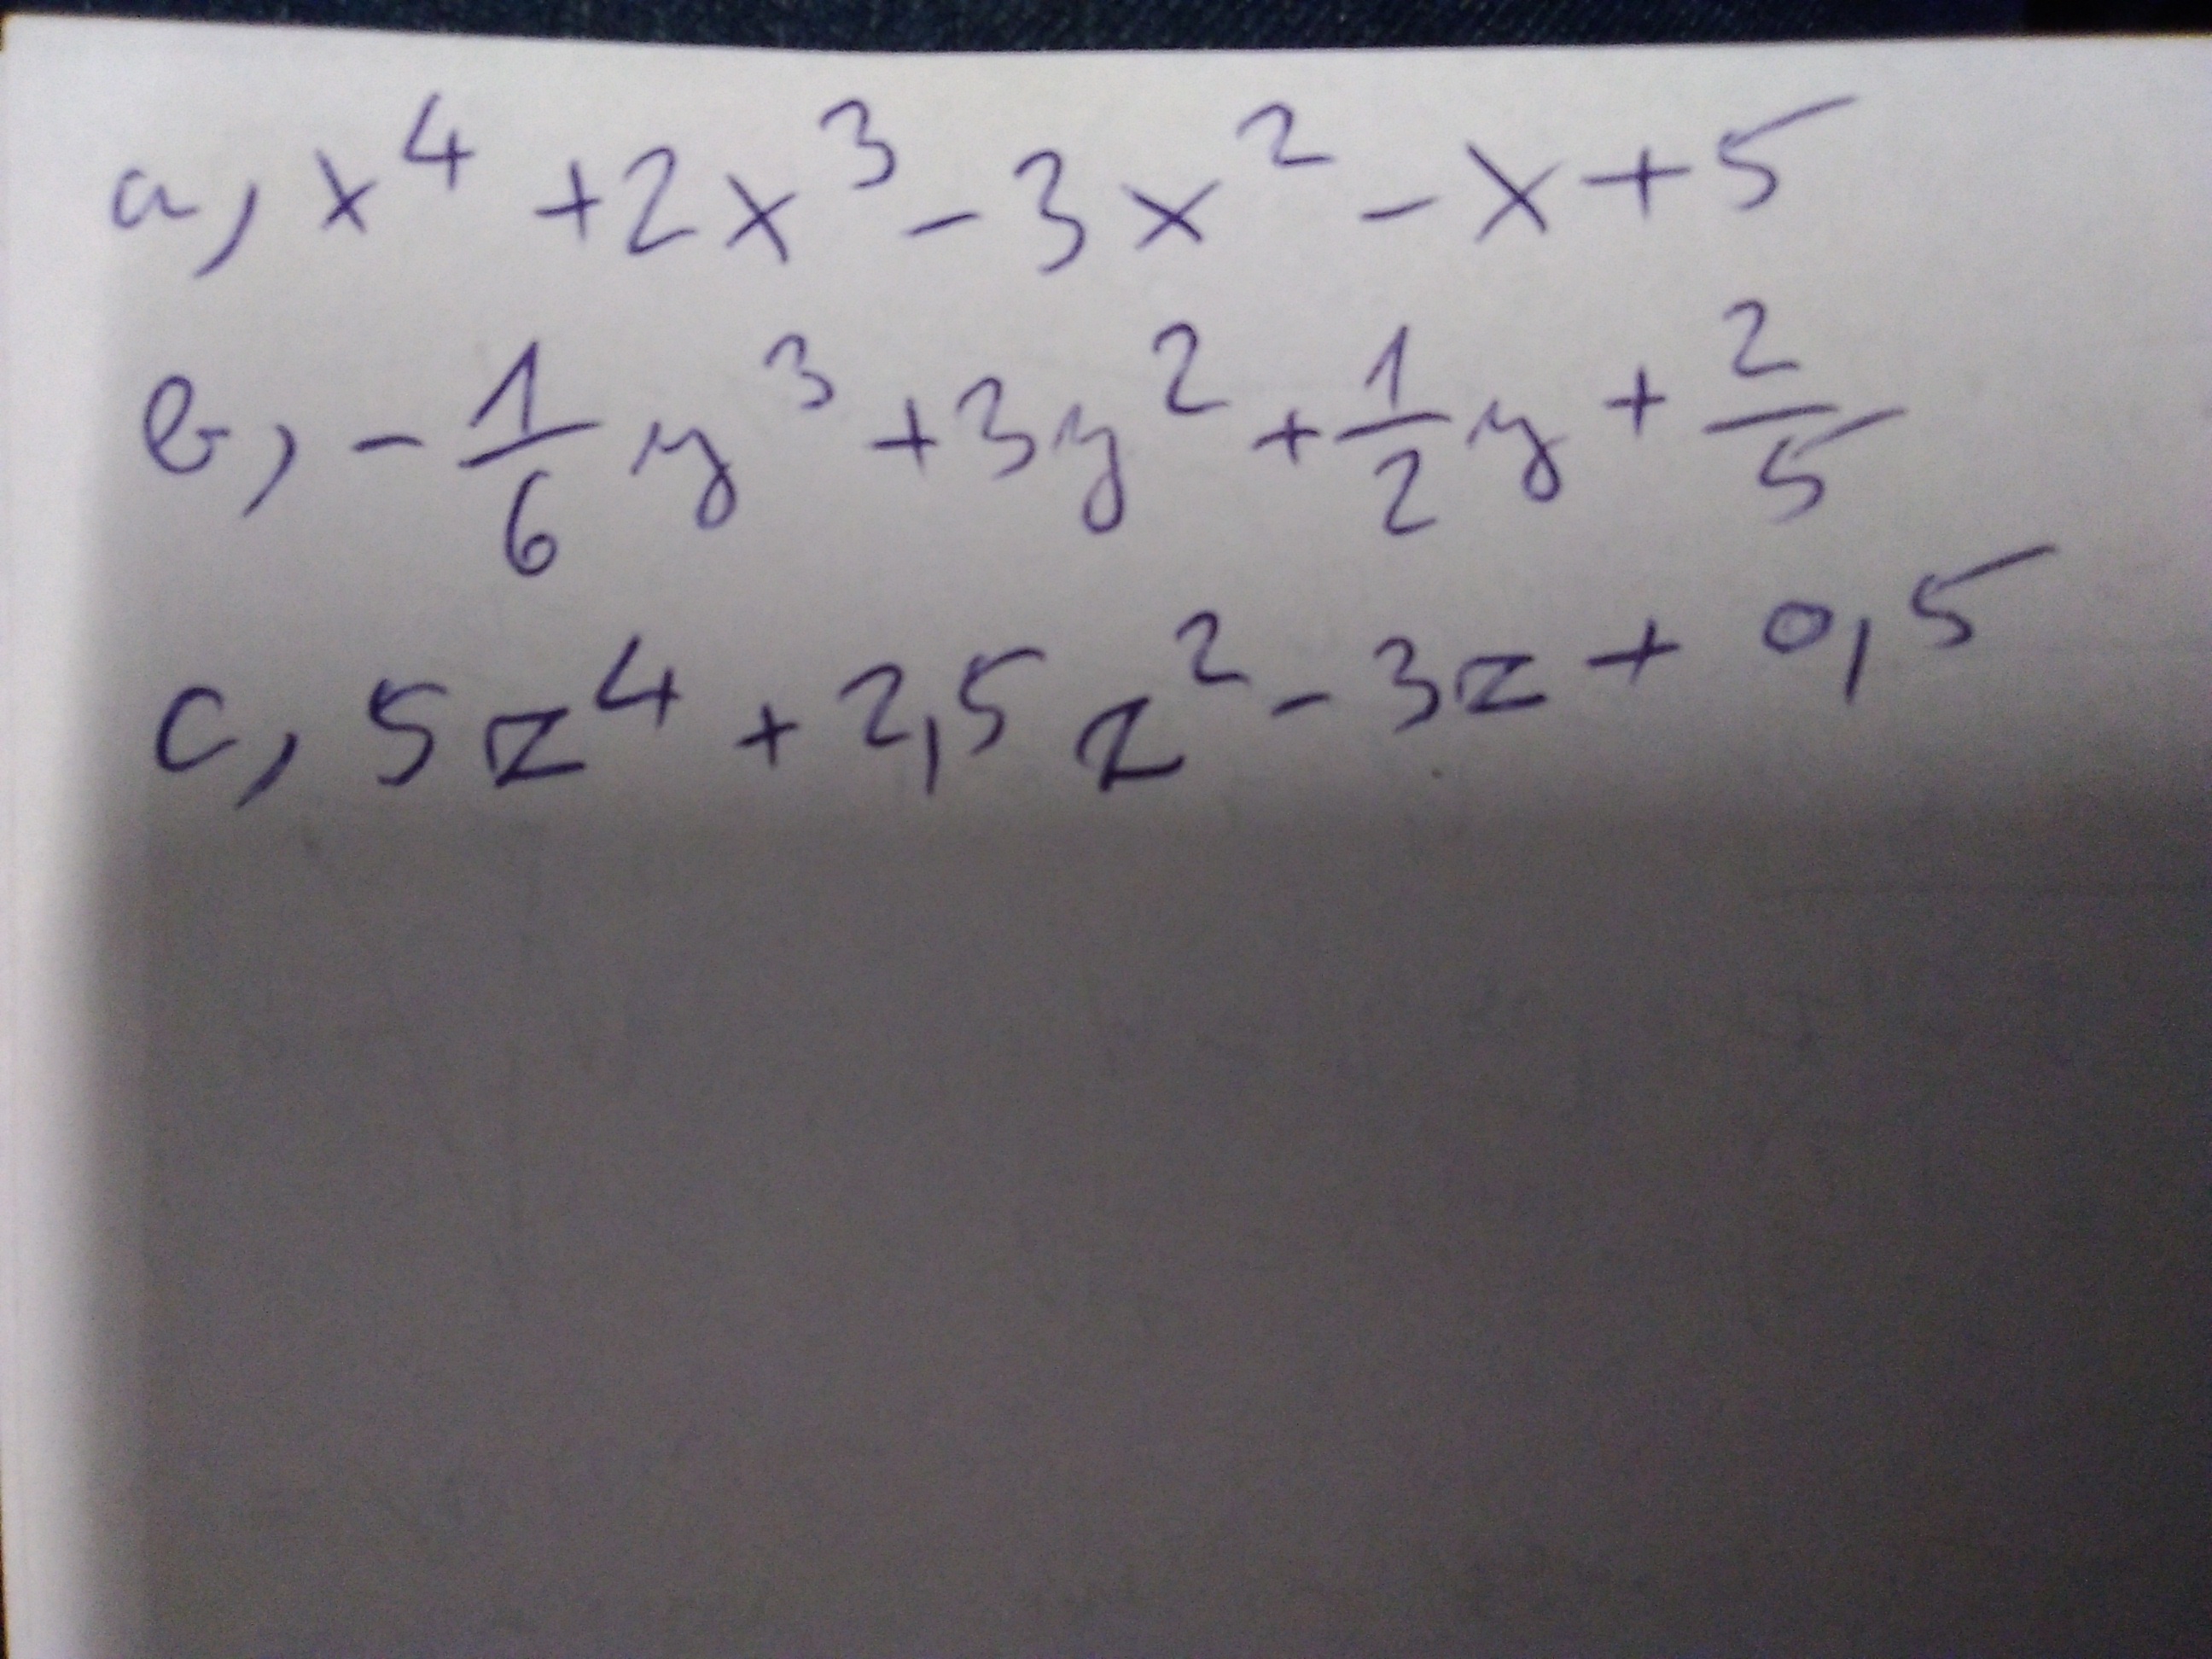 a, x⁴ + 2x³ - 3x² - x + 5
b, - 1/6 y³ + 3y² + 1/2 y + 2/5
c, 5z⁴ + 2,5z² - 3z + 0,5